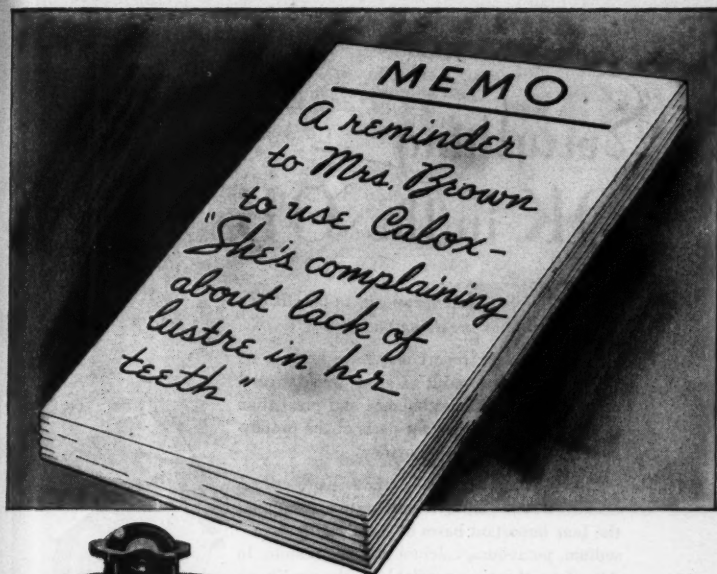 MEMO
A reminder
to Mrs. Brown
to use Calox-
"She's complaining
about lack of
lustre in her
teeth"